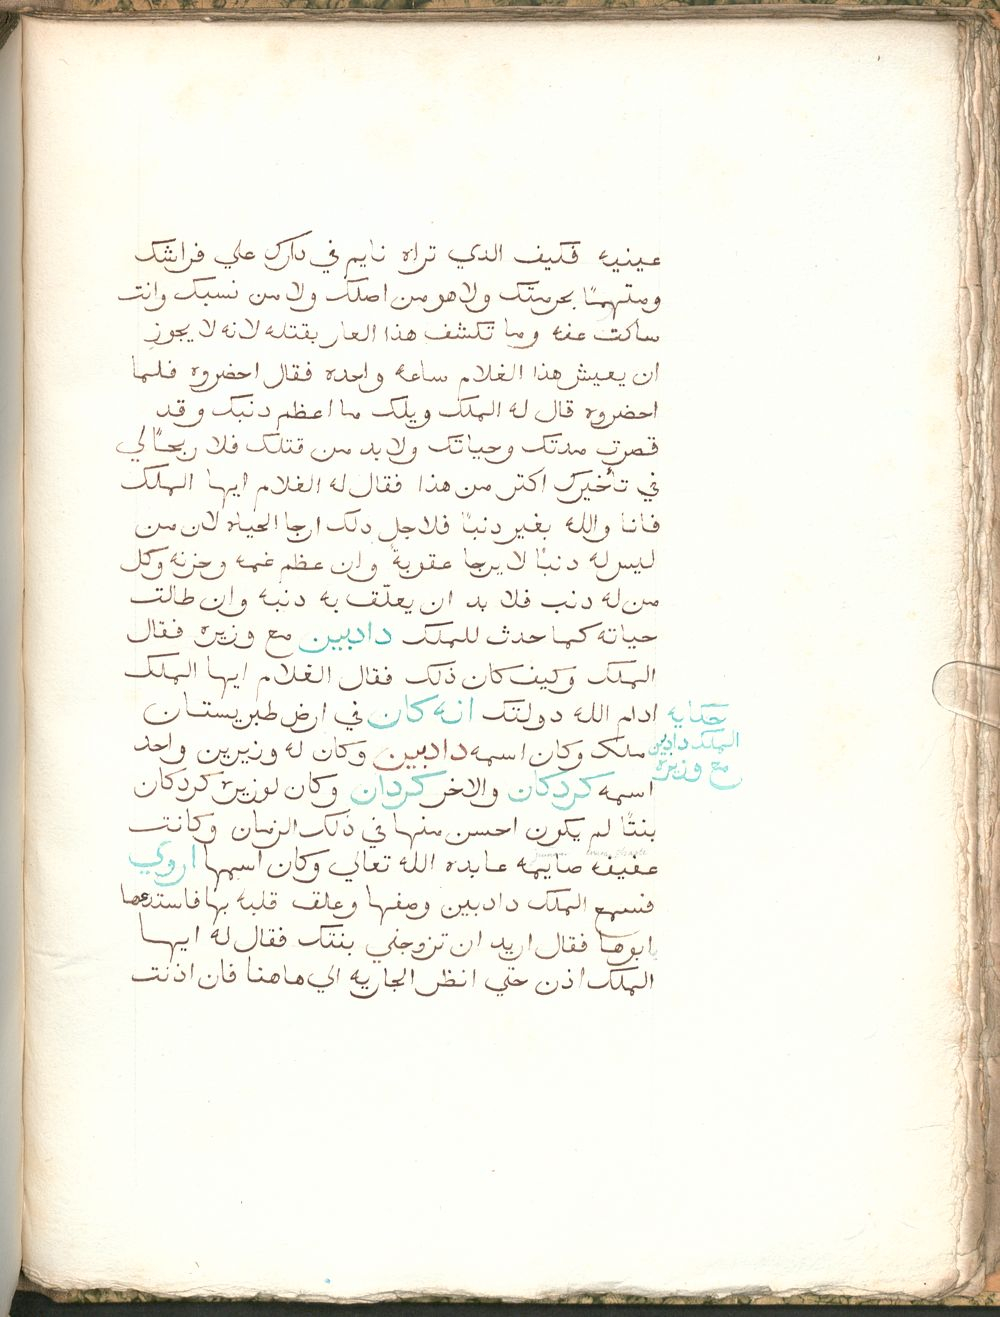 عينيه فكيف الذي تراه نايم في دارك علي فراشك
ومتهمًا بحرمتك ولا هو من اصلك ولا من نسبك وانت
ساكت عنه وما تكشف هذا العار بقتله لانه لا يجوز
ان يعيش هذا الغلام ساعه واحده فقال احضروه فلما
احضروه قال له الملك ويلك ما اعظم دنبك وقد
قصرت مدتك وحياتك ولا بد من قتلك فلا ربحًا لي
في تأخيرك اكتر من هذا فقال له الغلام ايها الملك
فانا والله بغير دنبًا فلاجل دلك ارجا الحياه لان من
ليس له دنبًا لا يرجا عقوبة وان عظم غمه وحزنه وكل
من له دنب فلا بد ان يعلّف به دنبه وان طالت
حياته كما حدث للملك دادبين مع وزيره فقال
الملك وكيف كان ذلك فقال الغلام ايها الملك
ادام الله دولتك انه كان في ارض طبريستان
ملك وكان اسمه دادبين وكان له وزيرين واحد
اسمه كردكان والاخر كردان وكان لوزيره كردكان
بنتًا لم يكون احسن منها في ذلك الزمان وكانت
عفيفه صايمه عابده الله تعالي وكان اسمها اروي
فسمع الملك دادبين وصفها وعلق قلبه بها فاستدعا
ابوها فقال اريد ان تزوجني بنتك فقال له ايها
الملك اذن حتي انظر الجاريه الي هاهنا فان اذنت
حكايه
الملك دادبين
مع وزيره